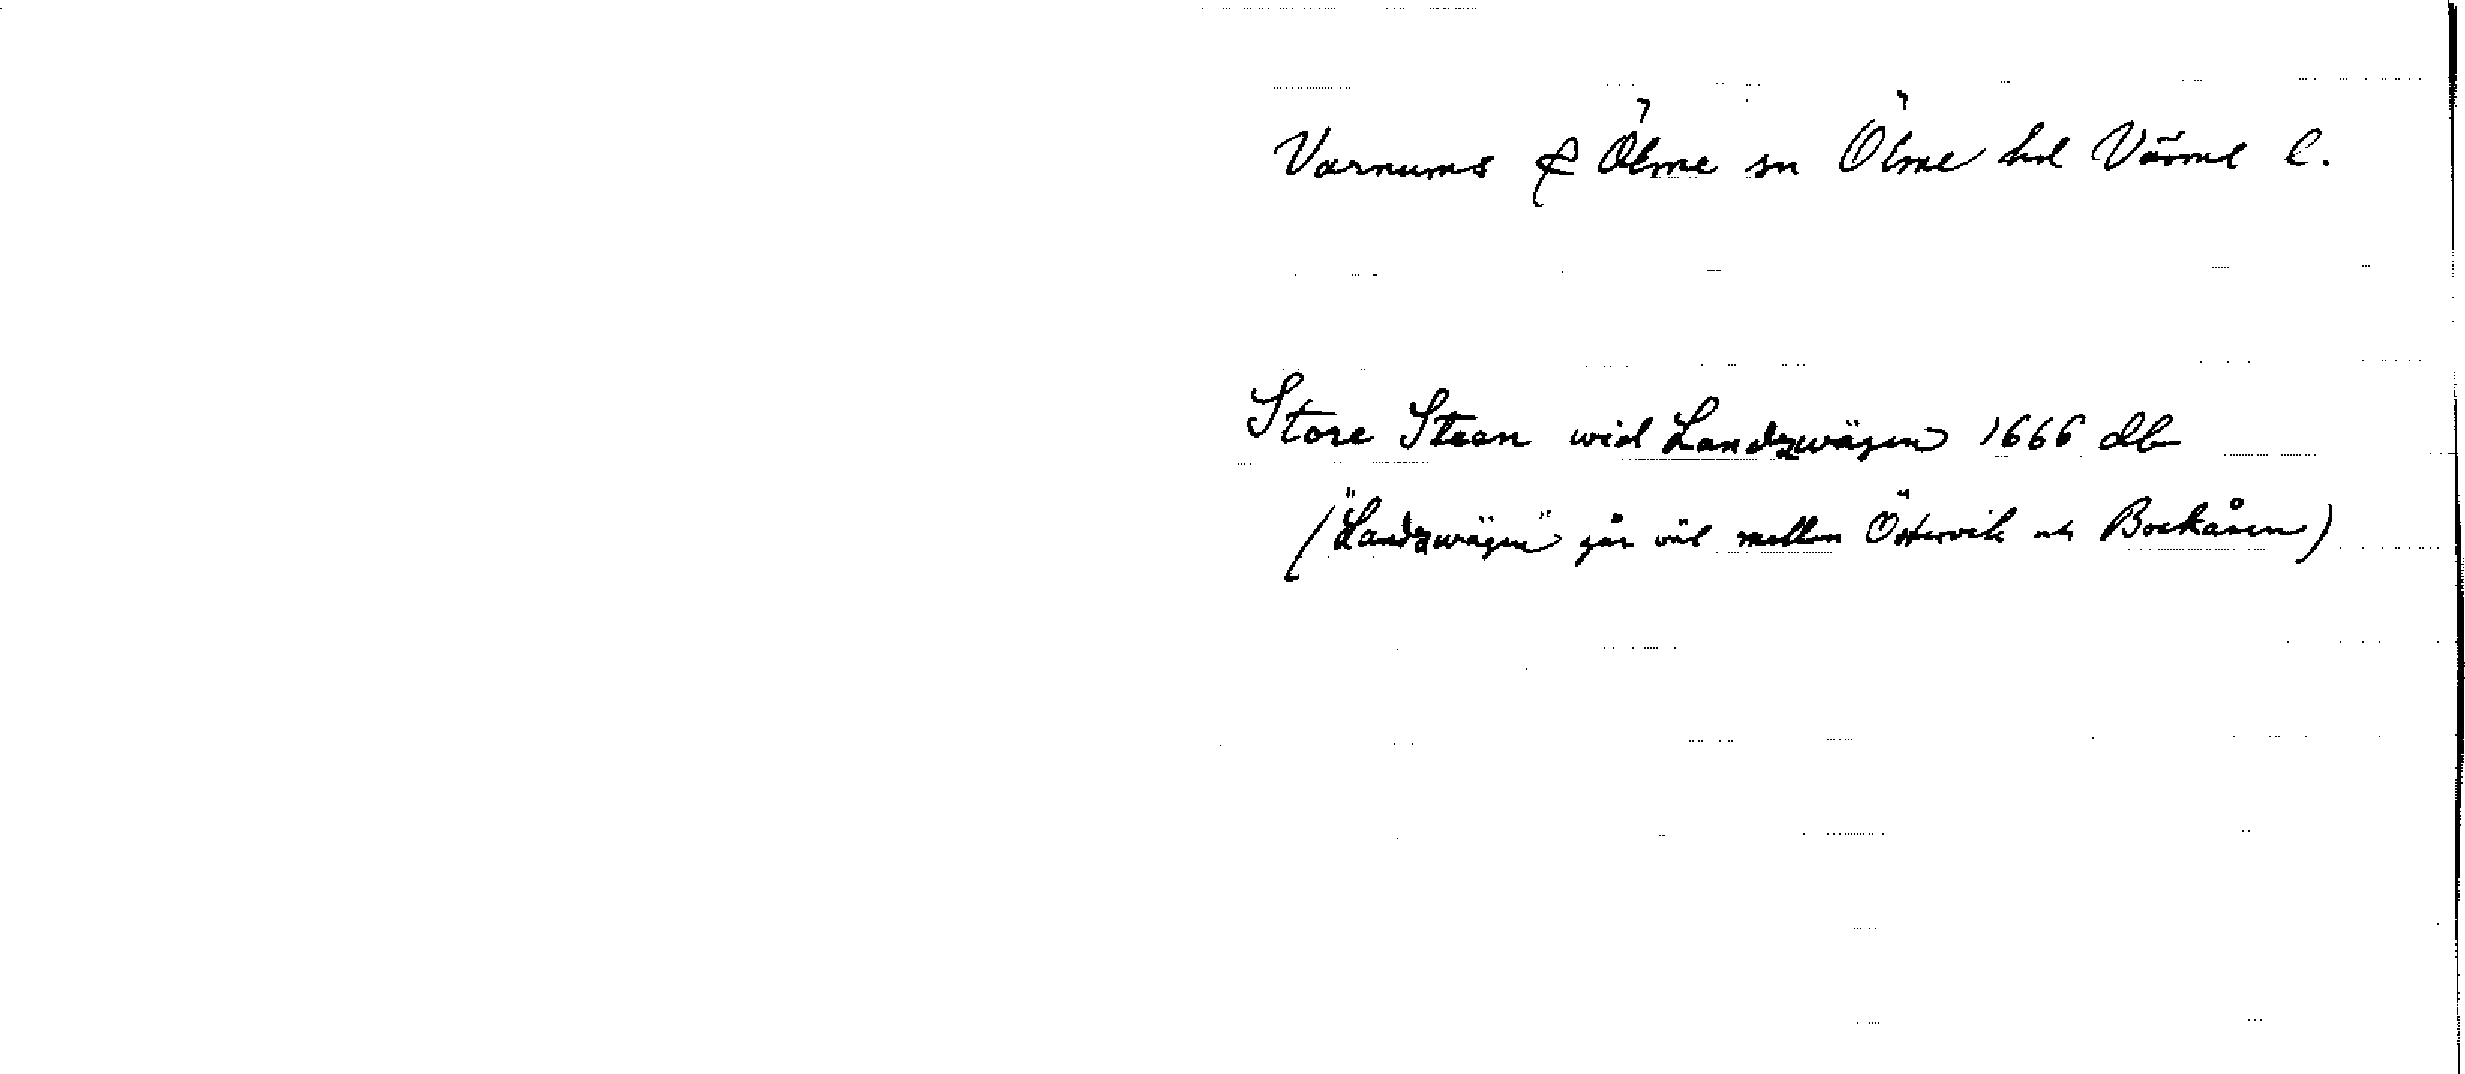 Varnums & Ölme sn Ölme hd Värml l.
Store Steen wid Landzwägen 1666 db
("Landzwägen" går väl mellan Östervik och Bockåsen)